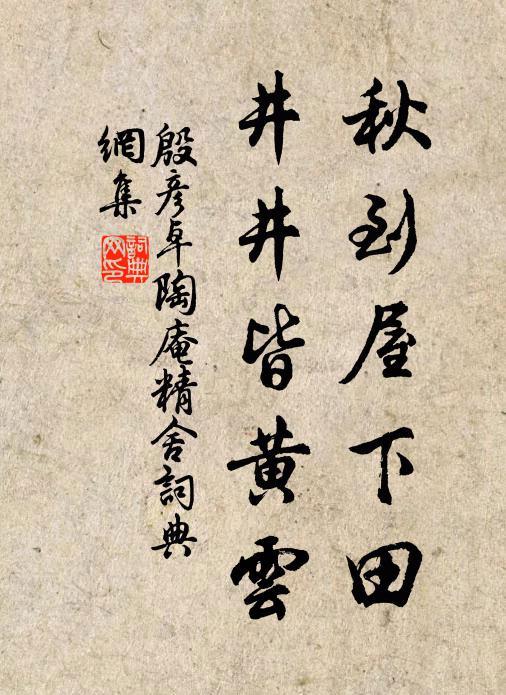 秋到屋下田
井井皆黃雲
殷彦卓陶庵精舍詞典
網集
詞典
网印